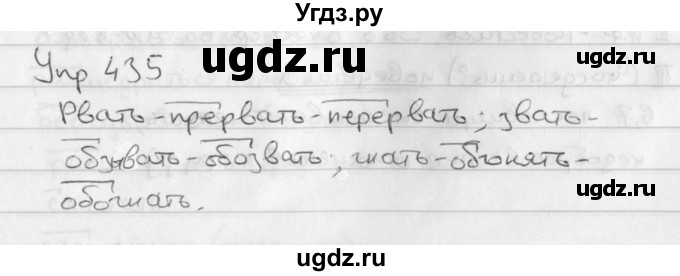 Угдз.ру
Упр 435
ugdz.ru
ugdz.ru
Рвать-прервать-перервать; звать-
обзывать-обозвать; гнать-обгонять-
обогнать.
ugdz.ru
ugdz.ru
ugdz.ru
ugdz.ru